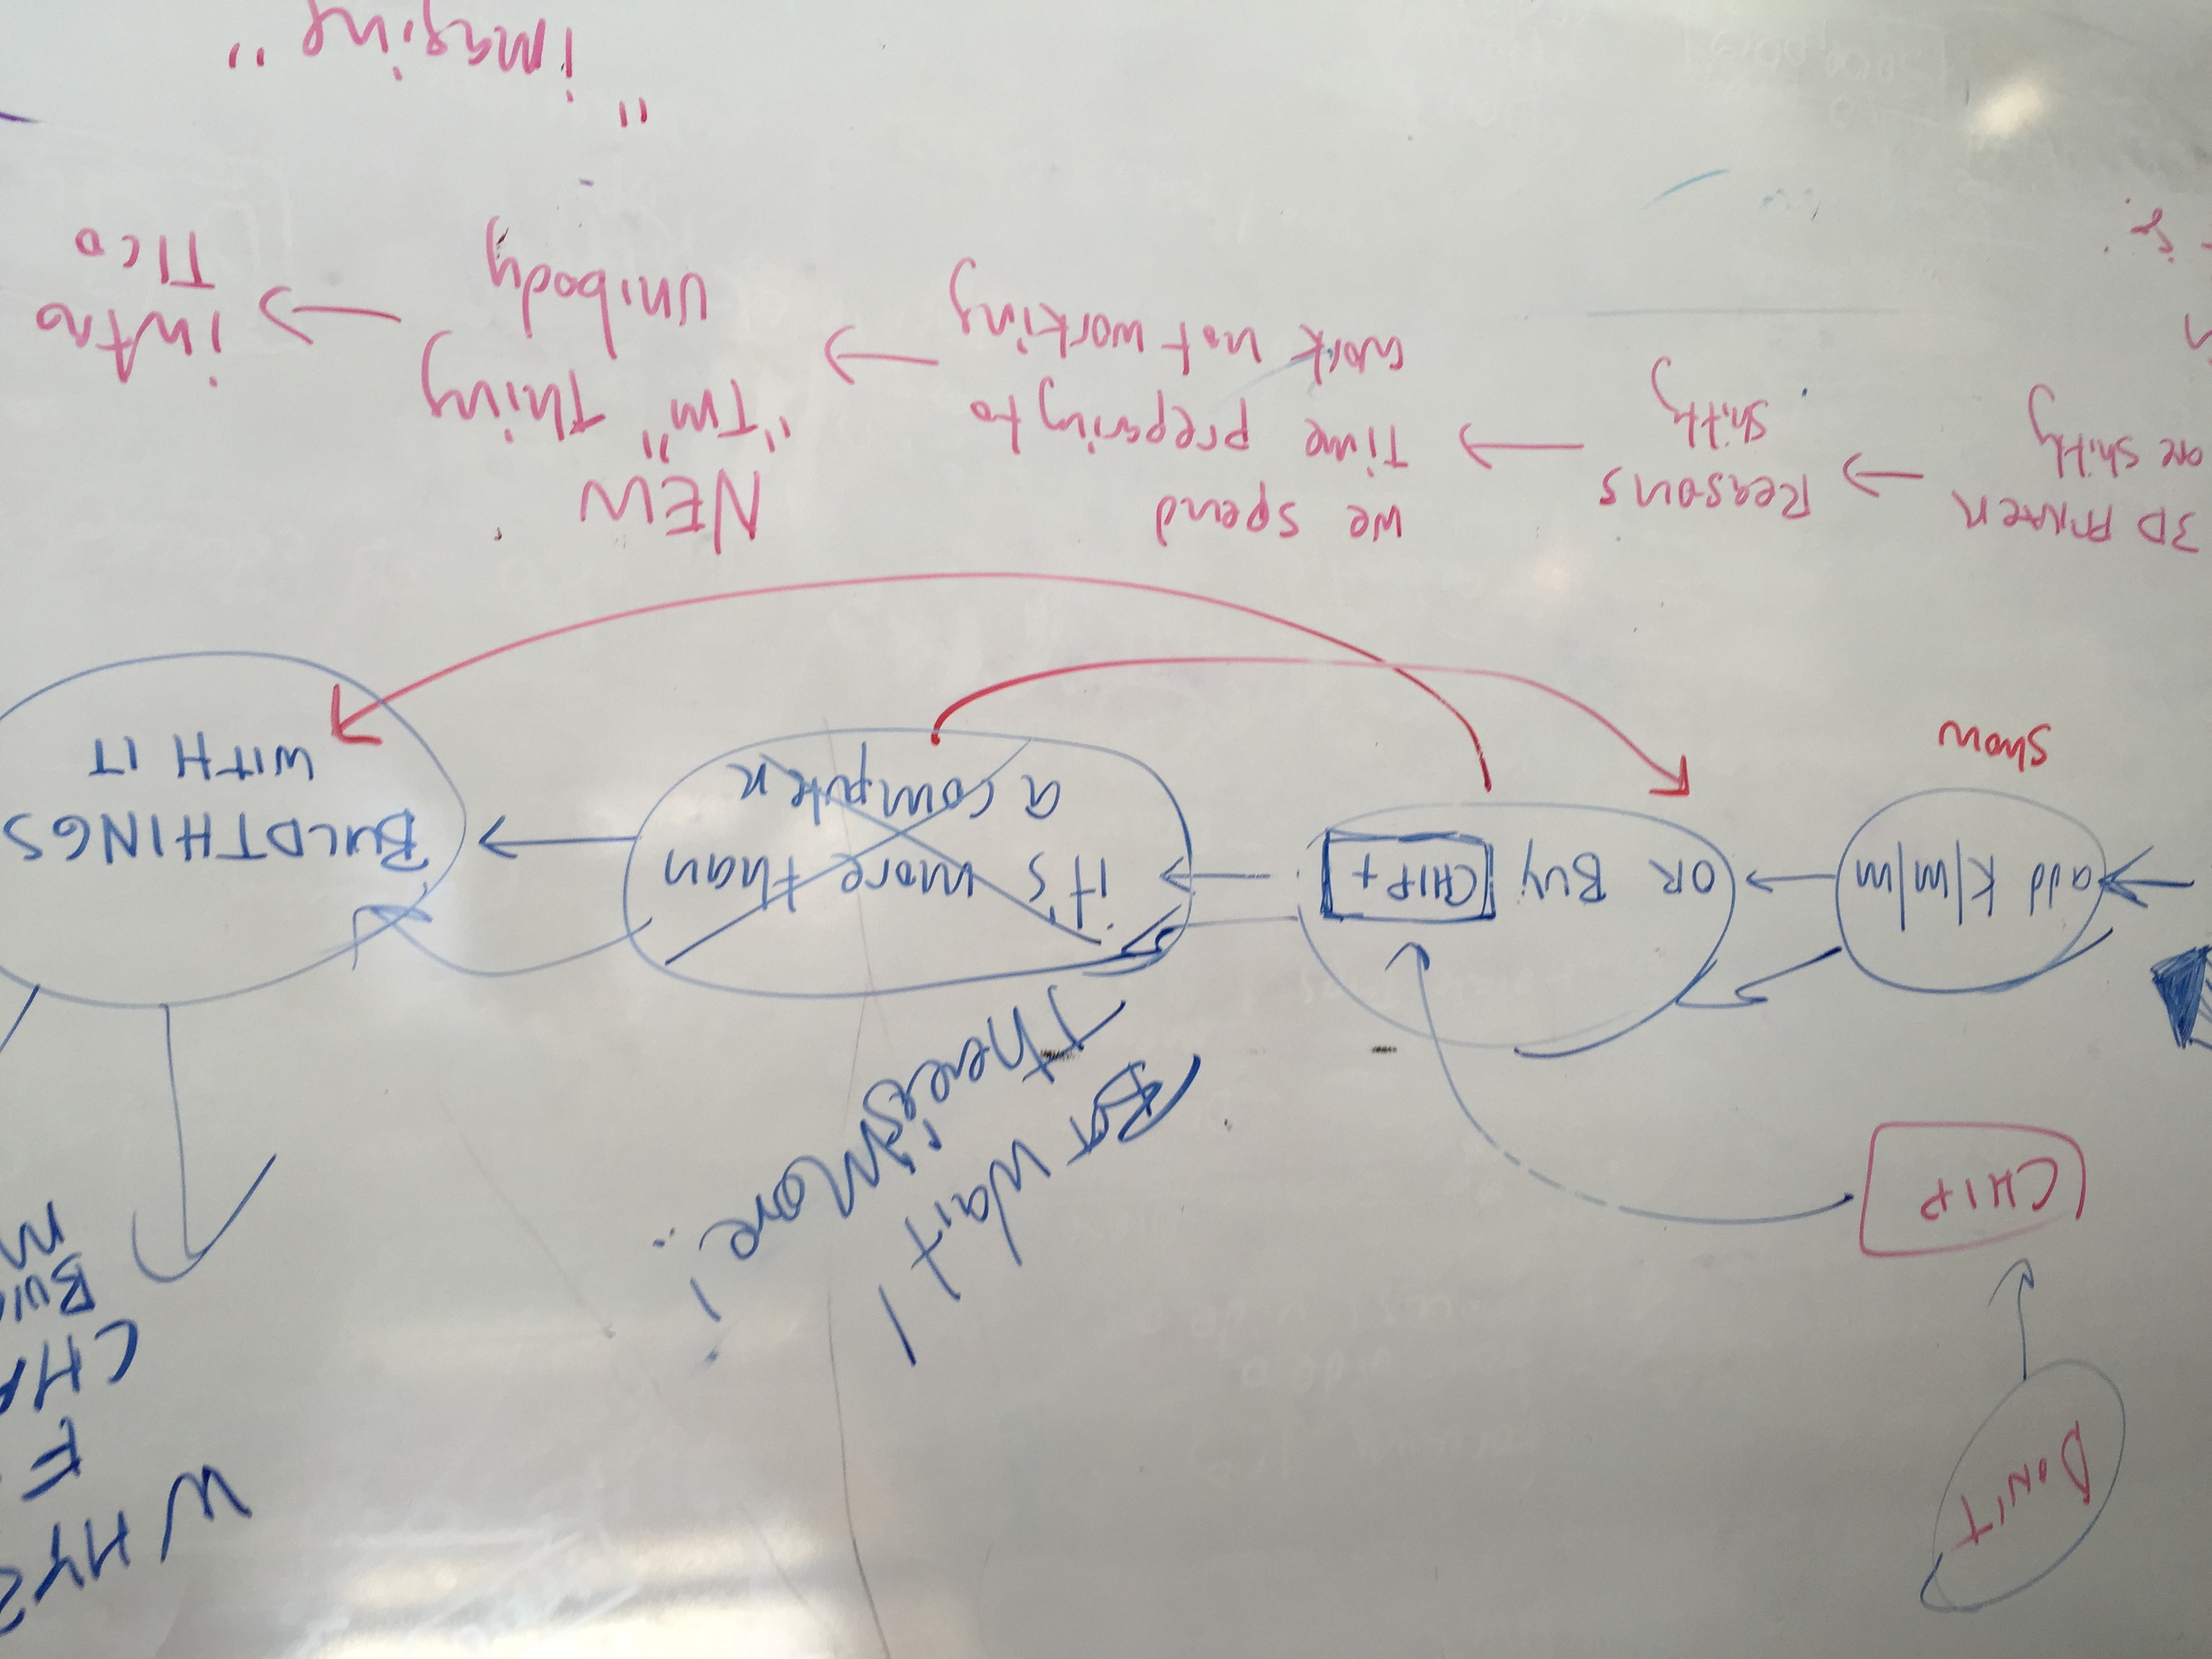 DON'T
WHY?
CHIP
But Wait!
There's More!
add k/m/m
OR BUY CHIP+
it's more than
a computer
BUILD THINGS
WITH IT
show
3D PRINTER
are shitty
Reasons
shitty
we spend
Time preparing to
work not working
NEW
"TM" Thing
unibody
intro
TICO
"imagine"